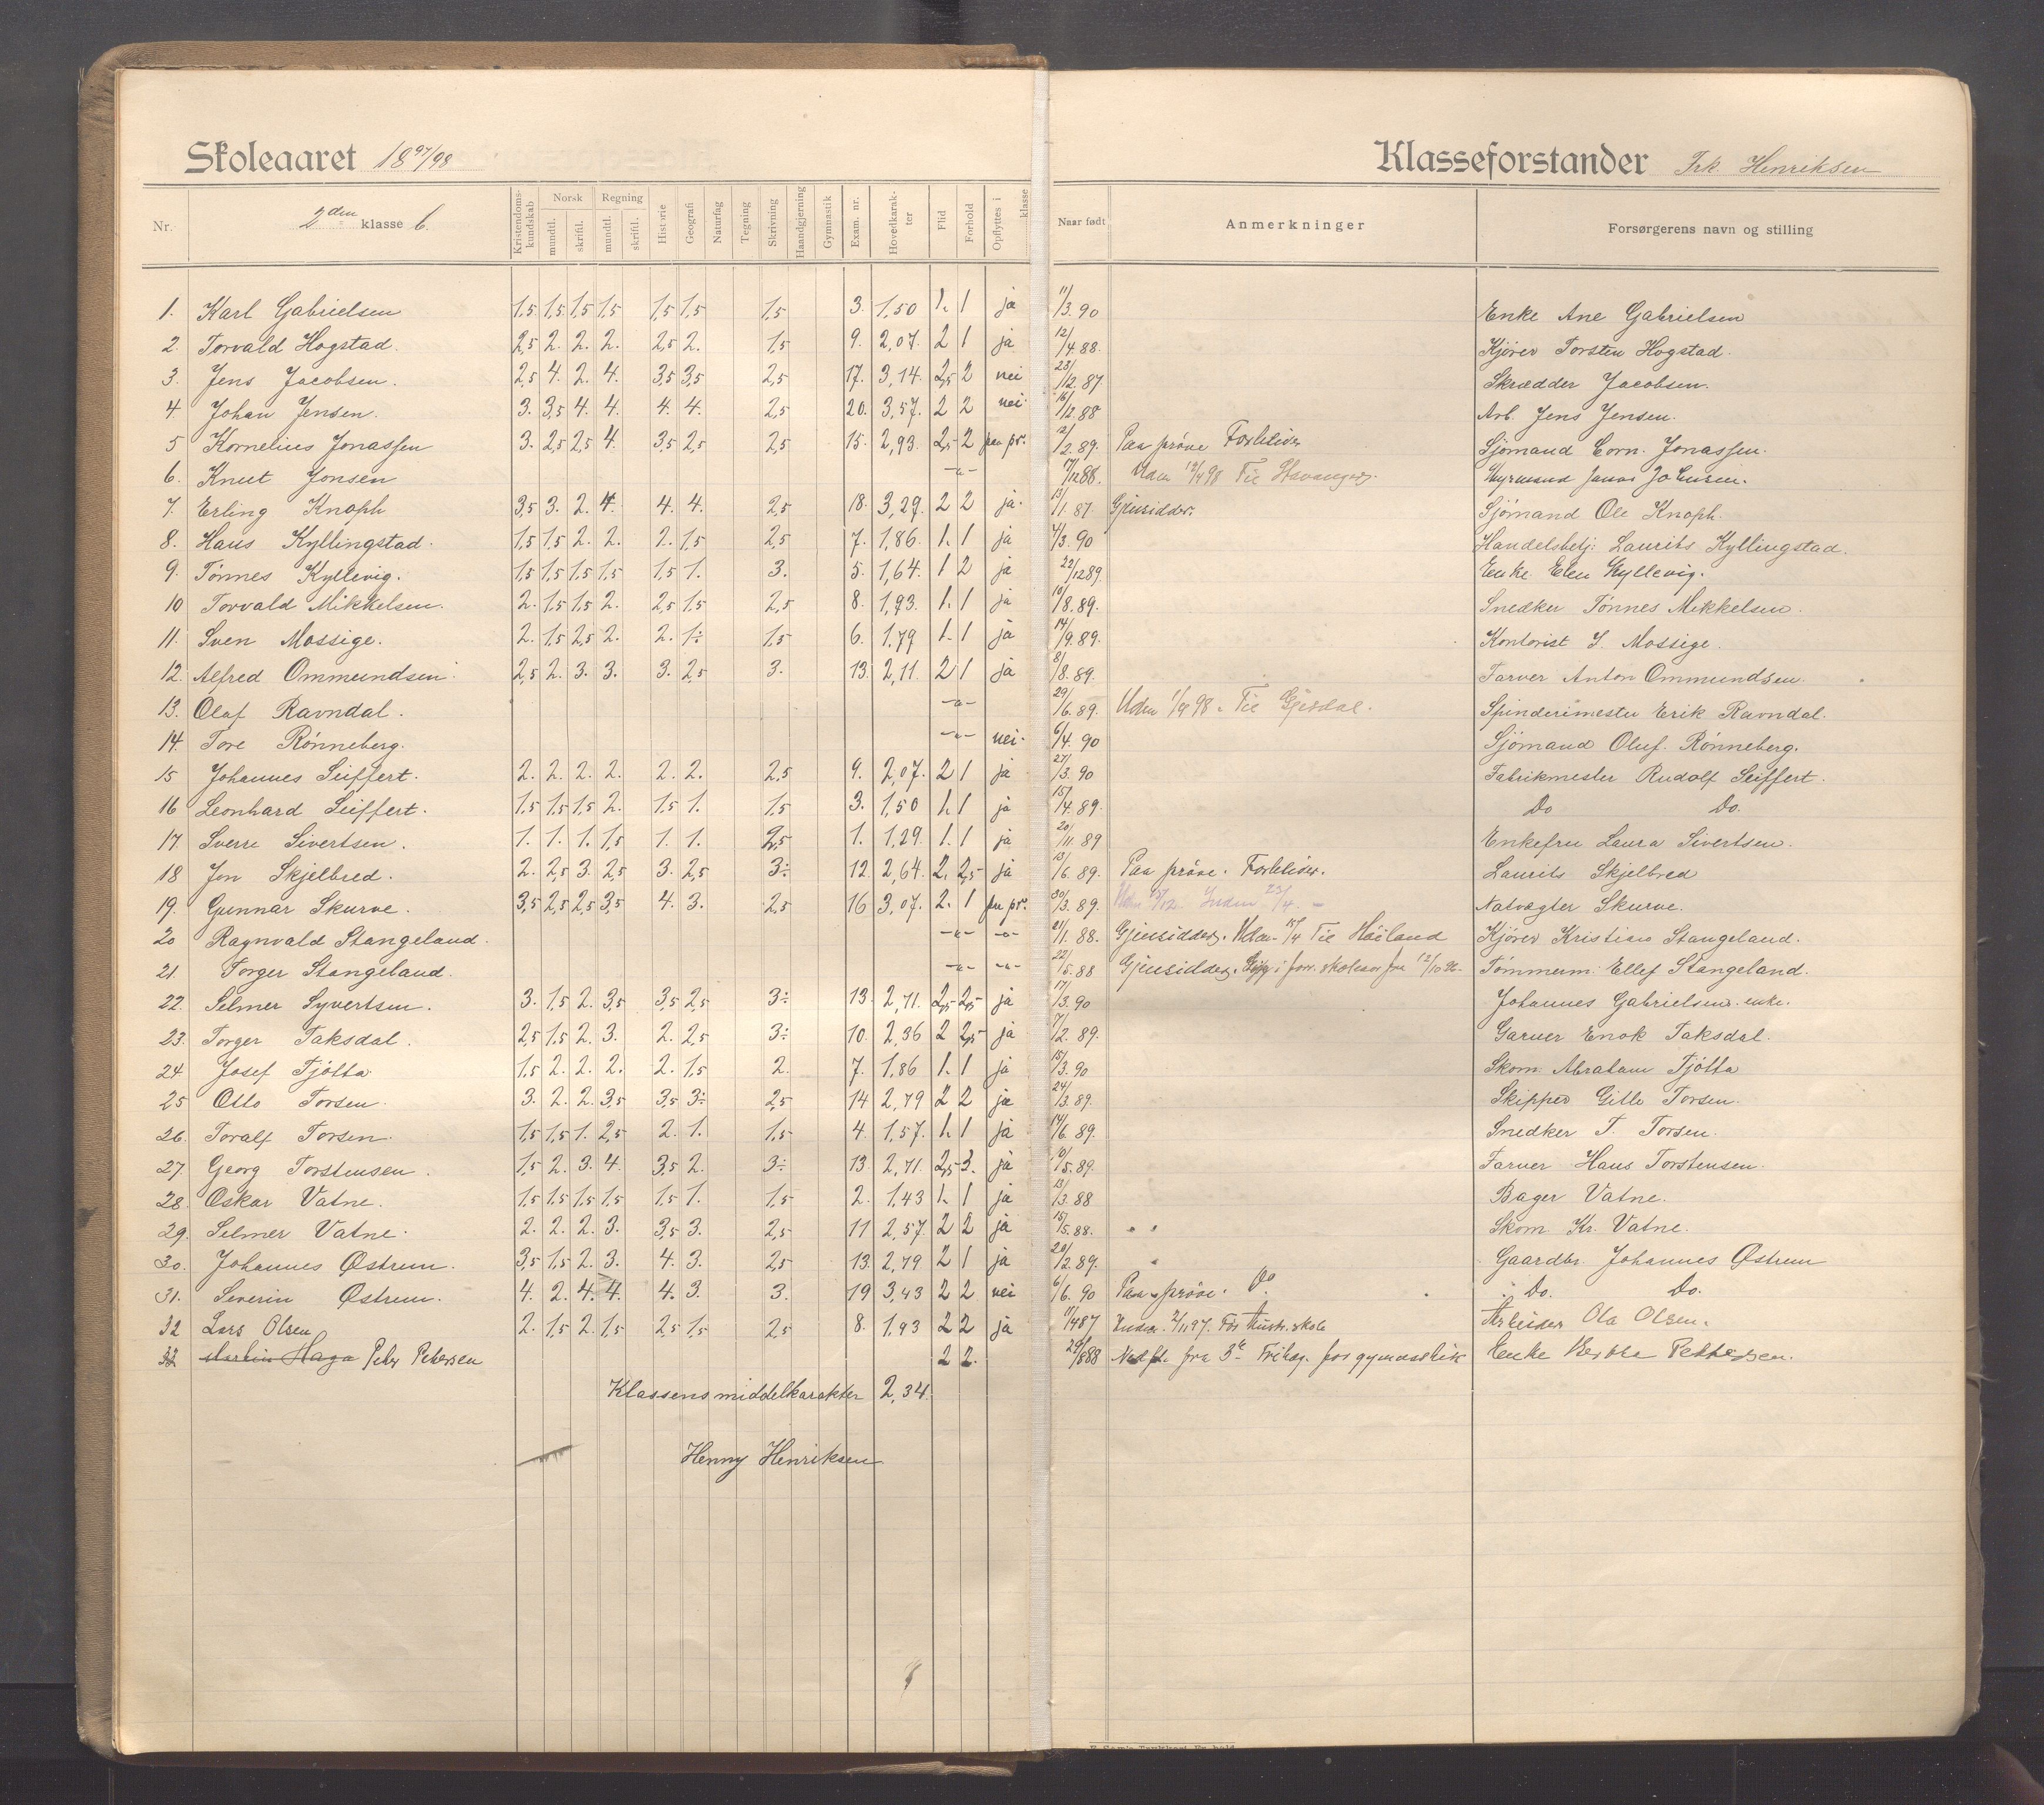 Skoleaaret 18 97/98
Klasseforstander Frk. Henriksen
Nr. 2den klasse b. Kristendomskundskab Norsk mundtl. skriftl. Regning mundtl. skriftl. Historie Geografi Naturfag Tegning Skrivning Haandgjerning Gymnastik Exam. nr. Hovedkarakter Flid Forhold Opflyttes i klasse Naar født Anmerkninger Forsørgerens navn og stilling
1. Karl Gabrielsen 1,5 1,5 1,5 1,5 1,5 1,5 1,5 3. 1,50 1. 1 ja 11/3.90 Enke Ane Gabrielsen
2. Torvald Hogstad. 2,5 2. 2. 2. 2,5 2. 1,5 9. 2,07. 2 1 ja 12/4.88. Kjører Torsten Hogstad.
3. Jens Jacobsen. 2,5 4. 2. 4. 3,5 3,5 2,5 17. 3,14. 2,5 2 nei 23/12.87 Skrædder Jacobsen.
4. Johan Jensen. 3. 3,5 4. 4. 4. 4. 2,5 20. 3,57. 2 2 nei. 16/12.88 Arb. Jens Jensen.
5 Kornelius Jonassen 3. 2,5 2,5 4. 3,5 2,5 2,5 15. 2,93. 2,5 2 paa pr. 12/2.89. Paa prøve Sjømand Corn. Jonassen.
6. Knut Jonsen -"- 17/12 88. Uden 12/4 98 Til Stavanger.
7. Erling Knoph 3,5 3. 2. 4. 4. 4. 2,5 18. 3,29. 2 2 ja. 13/1.87. Gjensidder. Sjømand Ole Knoph.
8. Hans Kyllingstad. 1,5 1,5 2. 2. 2. 1,5 2,5 7. 1,86. 1. 1 ja 4/3.90 Handelsbetj. Laurits Kyllingstad.
9. Tønnes Kyllevig. 1,5 1,5 1,5 1,5 1,5 1. 3. 5. 1,64. 1 2 ja 22/12 89. Enke Elen Kyllevig.
10 Torvald Mikkelsen. 2. 1,5 1,5 2. 2,5 1,5 2,5 8. 1,93. 1. 1 ja 10/8.89. Snedker Tønnes Mikkelsen.
11. Sven Mossige. 2. 1,5 2,5 2. 2. 1÷ 1,5 6. 1,79 1. 1 ja 14/9.89. Kontorist S. Mossige.
12. Alfred Ommundsen. 2,5 2. 3. 3. 3. 2,5 3. 13. 2,11. 2 1 ja 8/8.89. Farver Anton Ommundsen.
13. Olaf Ravndal. -"- 29/6.89. Uden 98. Til Gjesdal. Spinderimester Erik Ravndal.
14. Tore Rønneberg. -"- nei. 6/4.90 Sjømand Oluf. Rønneberg.
15 Johannes Seiffert. 2. 2. 2. 2. 2. 2. 2,5 9. 2,07. 2 1 ja 27/3.90 Fabrikmester Rudolf Seiffert.
16 Leonhard Seiffert. 1,5 1,5 1,5 2. 1,5 1. 1,5 3. 1,50 1. 1 ja 15/4.89. Do Do.
17. Sverre Sivertsen. 1. 1. 1. 1,5 1. 1. 2,5 1. 1,29. 1. 1 ja 20/11.89 Enkefru Laura Sivertsen.
18 Jon Skjelbred. 2. 2,5 3. 2,5 3. 2,5 3÷ 12. 2,64. 2. 2,5 ja 13/6.89. Paa prøve. Laurits Skjelbred
19. Gunnar Skurve. 3,5 2,5 2,5 3,5 4. 3. 2,5 16 3,07. 2. 1 paa pr. 30/3.89. Uden 15/12. Inden 23/4. Natvægter Skurve.
20 Ragnvald Stangeland. -"- -"- 21/1.88. Gjensidder. Uden 15/4 Til Høiland Kjører Kristian Stangeland.
21. Torger Stangeland. -"- -"- 22/5.88 Gjensidder. i forr. skoleaar fra 12/10 96. Tømmerm. Ellef Stangeland.
22. Selmer Syvertsen. 3. 1,5 2. 3,5 3,5 2,5 3÷ 13. 2,71. 2,5 2,5 ja 17/3.90 Johannes Gabrielsens enke.
23. Torger Taksdal. 2,5 1,5 2. 3. 2. 2,5 3÷ 10. 2,36 2 2,5 ja 7/2.89. Garver Enok Taksdal.
24. Josef Tjøtta 1,5 2. 2. 2. 2. 1,5 2. 7. 1,86 1. 1 ja 15/3.90 Skom. Abraham Tjøtta
25 Otto Torsen. 3. 2. 2. 3,5 3,5 3÷ 2,5 14 2,79 2 2 ja 24/3.89. Skipper Gitle Torsen.
26. Toralf Torsen. 1,5 1,5 1. 2,5 2. 1. 1,5 4. 1,57. 1. 1 ja 14/6.89. Snedker T. Torsen.
27. Georg Torstensen. 1,5 2. 3. 4. 3,5 2. 3÷ 13. 2,71. 2,5 3. ja 10/5.89. Farver Hans Torstensen.
28. Oskar Vatne. 1,5 1,5 1,5 1,5 1,5 1. 1,5 2. 1,43 1. 1 ja 13/3.88 Bager Vatne.
29. Selmer Vatne. 2. 2. 2. 3. 3,5 3. 2,5 11 2,57. 2 2 ja 15/5.88. Skom. Kr. Vatne.
30. Johannes Østrem. 3,5 1,5 2. 3. 4. 3. 2,5 13. 2,79 2 1 ja 20/2.89. Gaardbr. Johannes Østrem
31. Severin Østrem. 4. 2. 4. 4. 4. 3. 3. 19 3,43 2 2 nei 6/6.90 Paa prøve. Do Do. Do.
32 Lars Olsen 2. 1,5 2. 1,5 2,5 1,5 2,5 8. 1,93 2 2 ja 11/4 87 Inden. 2/11 97. Før Kunst. skole Arbeider Ola Olsen.
33 Martin Haga Peter Petersen 2 2. 20/8 88 Nedfl. fra 3de Fritag. for gymnastik Enke Bertha Pettersen.
Klassens middelkarakter 2,34.
Henny Henriksen